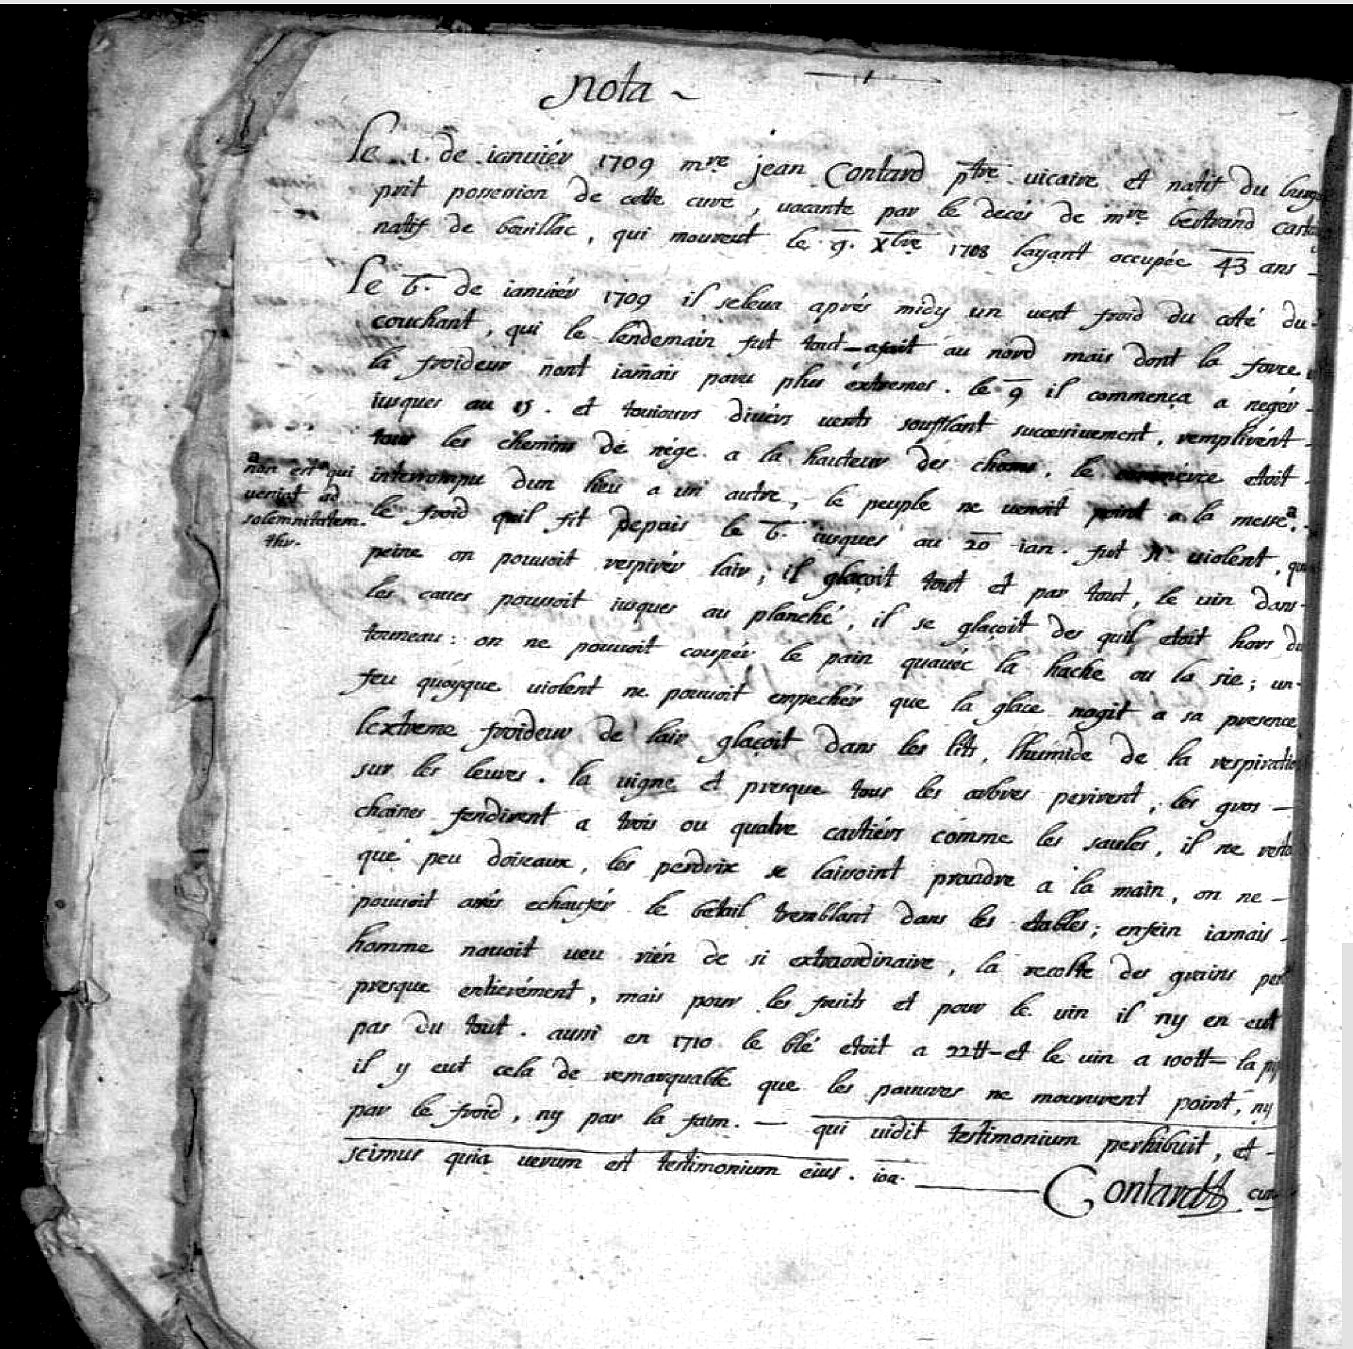 nota
Le 1. de ianuiér 1709 mre jean Contard ptre uicaire et natif du
prit possession de cette cure, uacante par le decés de mre bertrand
natif de bouillac, qui mourut le 9. Xbre 1708 layant occupée 43 ans
Le 6. de ianuiér 1709 il seleua aprés midy un uent froid du coté du
couchant, qui le lendemain fut tout-afait au nord mais dont la force
la froideur nont iamais paru plus éxtremes. le 9 il commença a negér
iusques au 15. et touiours diuérs uents soufflant successiuement, remplirént
tous les chemins de nége a la hauteur des champs, le commérce etoit
a non est qui
ueniat ad
solemnitatem.
thr.
interrompu dun lieu a un autre, le peuple ne uenoit point a la messe a.
le froid quil fit depuis le 6. iusques au 20 ian. fut si uiolent, qua
peine on pouuoit respirér lair; il glaçoit tout et par tout, le uin dans
les caues poussoit iusques au planché, il se glaçoit des quil etoit hors du
tonneau: on ne pouuoit coupér le pain quauéc la hache ou la sie; un
feu quoyque uiolent ne pouuoit empechér que la glace nagit a sa presence
lextreme froideur de lair glaçoit dans les lits, lhumide de la respiration
sur les leures. la uigne et presque tous les arbres perirent, les gros
chaines fendirent a trois ou quatre cartiérs comme les saules, il ne resta
que peu doiseaux, les perdrix se laissoint prandre a la main, on ne
pouuoit assés echaufér le betail tremblant dans les etables; enfein iamais
homme nauoit ueu rién de si extraordinaire, la recolte des grains
presque entierément, mais pour les fruits et pour le uin il ny en eut
pas du tout. aussi en 1710 le blé etoit a 22tt et le uin a 100tt la
il y eut cela de remarquable que les pauures ne moururent point, ny
par le froid, ny par la faim. — qui uidit testimonium perhibuit, et
scimus quia uerum est testimonium eius. ioa.
Contard